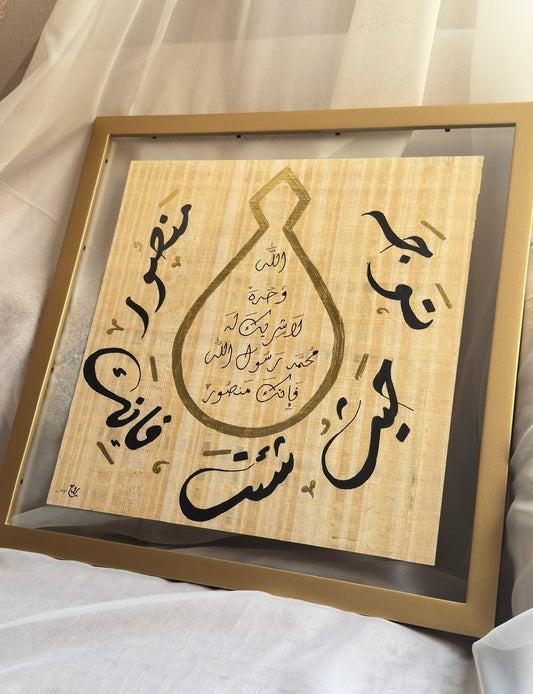 الله
وحده
لا شريك له
محمد رسول الله
فإنك منصور
توجه
حيث
شئت
فإنك
منصور